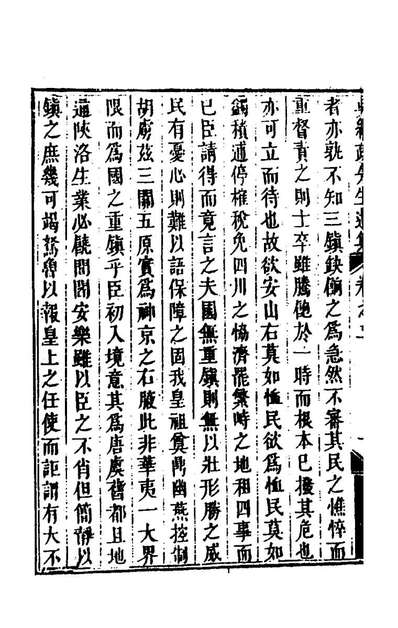 者亦孰不知三鎮缺餉之為急然不審其民之憔悴而
重督責之則士卒雖騰飽於一時而根本已撥其危也
亦可立而待也故欲安山右莫如恤民欲為恤民莫如
蠲積逋停榷稅免四川之協濟罷繁峙之地租四事而
已臣請得而竟言之夫國無重鎮則無以壯形勝之威
民有憂心則難以語保障之固我皇祖奠鼎幽燕控制
胡虜茲三關五原實為神京之右腋此非華夷一大界
限而為國之重鎮乎臣初入境意其為唐虞舊都且地
逼陜洛生業必饒閭閻安樂雖以臣之不肖但簡靜以
鎮之庶幾可竭駑魯以報皇上之任使而詎謂有大不